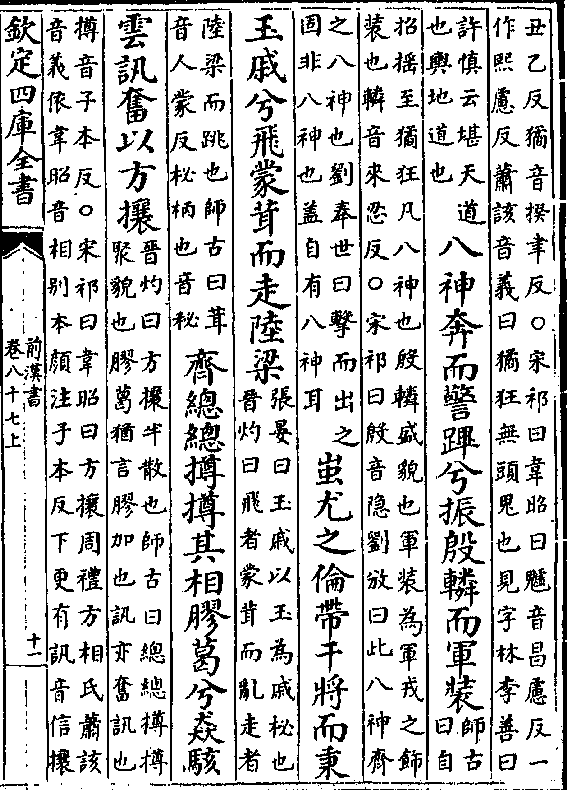 丑乙反獝音揆聿反〇宋祁曰韋昭曰魖音昌慮反一
作熙慮反蕭該音義曰獝狂無頭鬼也見字林李善曰
許慎云堪天道
也輿地道也
八神奔而警蹕兮振殷轔而軍裝
師古
曰自
招搖至獝狂凡八神也殷轔盛貌也軍裝為軍戎之飾
裝也轔音來忍反〇宋祁曰殷音隐劉攽曰此八神齊
之八神也劉奉世曰擊而出之
固非八神也蓋自有八神耳
蚩尤之倫帶干將而秉
玉戚兮飛蒙茸而走陸梁
張晏曰玉戚以玉為戚柲也
晉灼曰飛者蒙茸而亂走者
陸梁而跳也師古曰茸
音人蒙反柲柄也音秘
齊總總撙撙其相膠葛兮猋駭
雲訊奮以方攘
晉灼曰方攘半散也師古曰總總撙撙
聚貌也膠葛猶言膠加也訊亦奮訊也
撙音子本反〇宋祁曰韋昭曰方攘周禮方相氏蕭該
音義依韋昭音相别本顔注子本反下更有訊音信攘
欽定四庫全書
前漢書
卷八十七上
十一